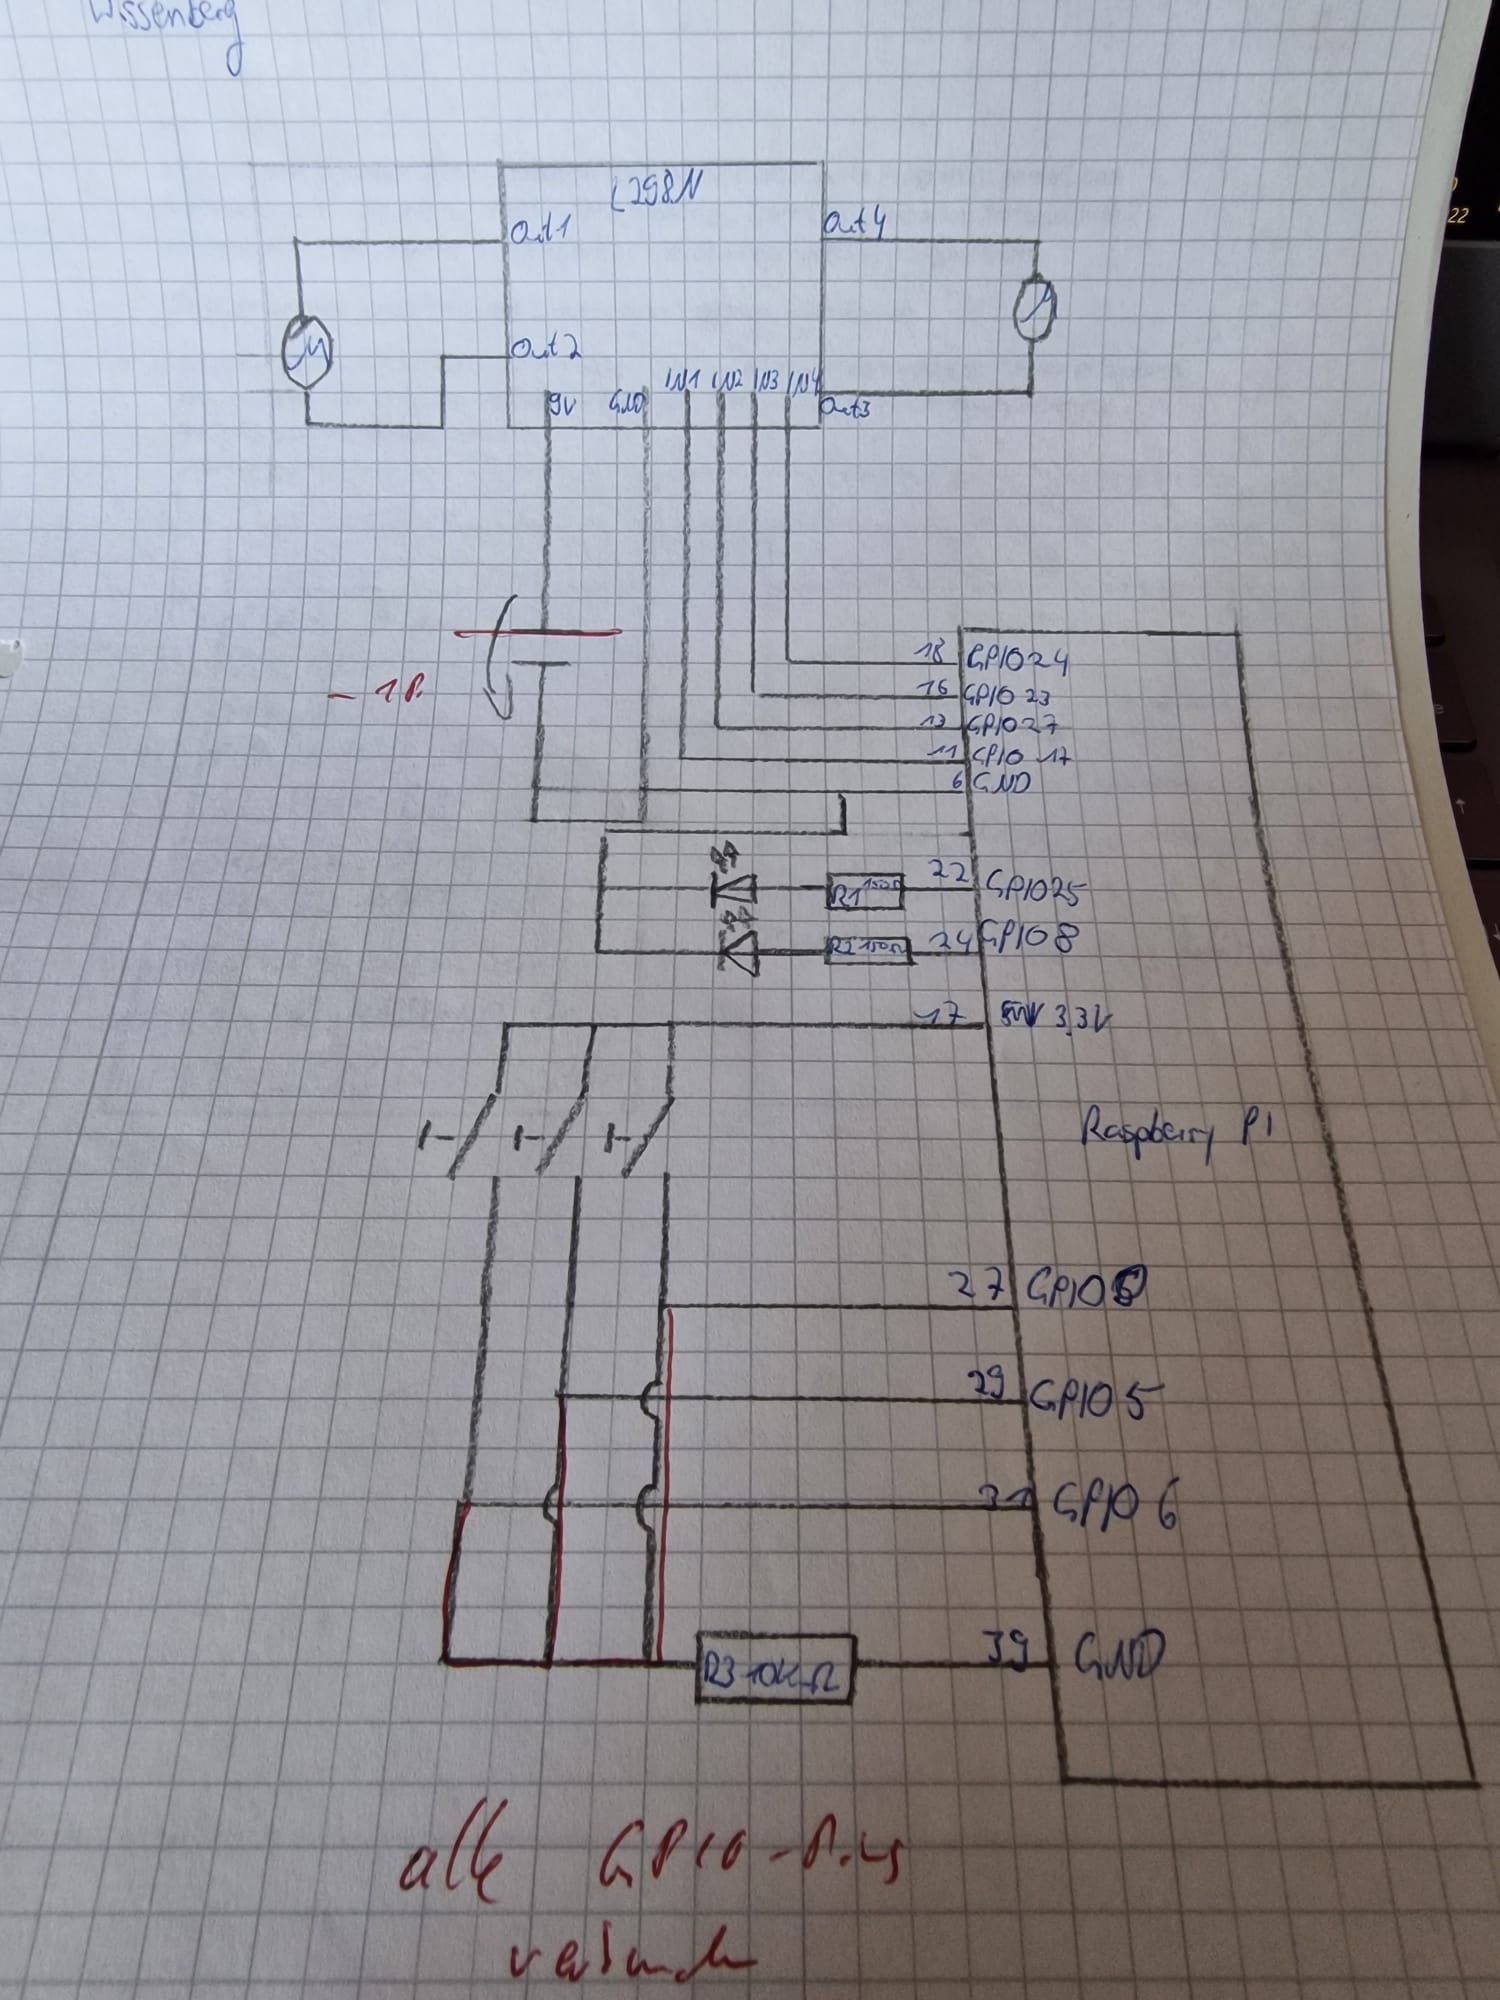 Wissenberg
L298N
Out1
Out4
Out2
IN1 IN2 IN3 IN4
9V GND
Out3
22
- 1P.
18 GPIO 24
16 GPIO 23
13 GPIO 27
11 GPIO 17
6 GND
22 GPIO25
R1 150Ω
24 GPIO 8
R2 150Ω
17 3,3V
Raspberry PI
27 GPIO 0
29 GPIO 5
31 GPIO 6
39 GND
R3 10KΩ
alle GPIO-Pins
verbunden